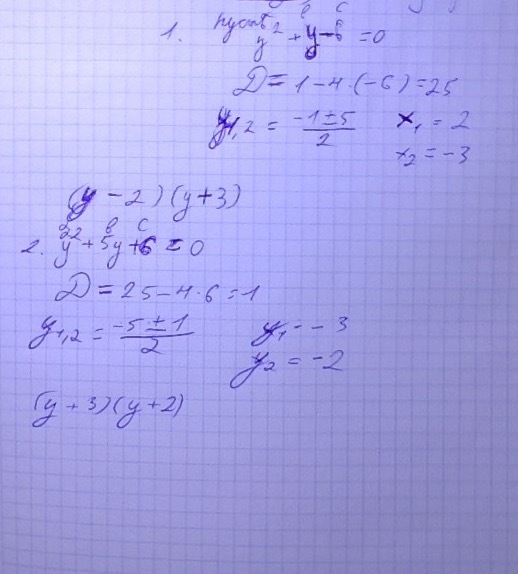 в с
1. пусть y² + y - 6 = 0
D = 1 - 4·(-6) = 25
y1,2 = (-1 ± 5)/2 x₁ = 2
x₂ = -3
(y - 2)(y + 3)
а в с
2. y² + 5y + 6 = 0
D = 25 - 4·6 = 1
y1,2 = (-5 ± 1)/2 y₁ = -3
y₂ = -2
(y + 3)(y + 2)